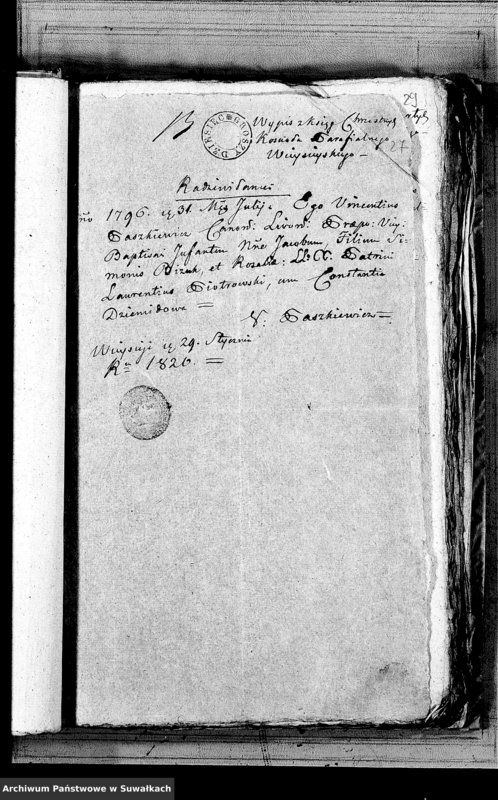 29
13
DZIESIĘĆ GROSZY
Wypis z Księg Chrzestnych
Kościoła Parafialnego
27
Wiżayńskiego
Radziwiłłowic
1796. 31. Mca Julij. Ego Vincentius
Paszkiewicz Canon: Livon: Præp:
Baptisavi Infantem Nne Jacobum, Filium Si-
monis et Rosalia: LL: CC: Patrini
Laurentius Piotrowski, cum Constantia
Dziemidowa =
V: Paszkiewicz =
29. Stycznia
Ru 1826. =
Archiwum Państwowe w Suwałkach